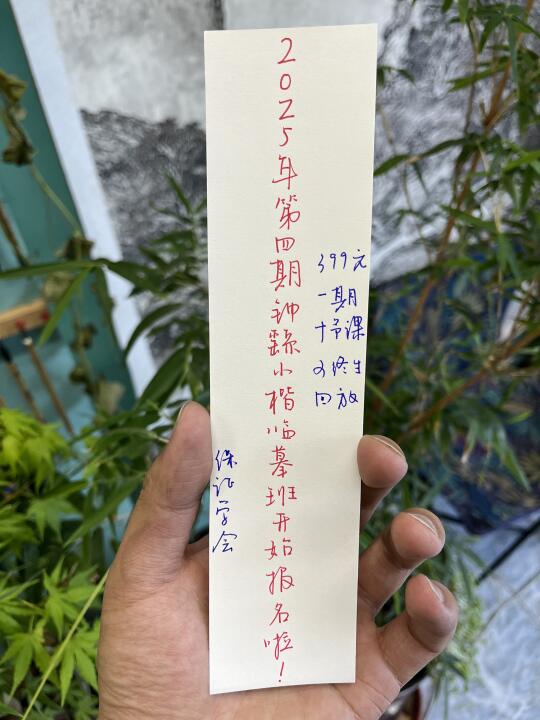 2025年第四期钟繇小楷临摹班开始报名啦！
399元
一期
十节课
可终生
回放
保证学会